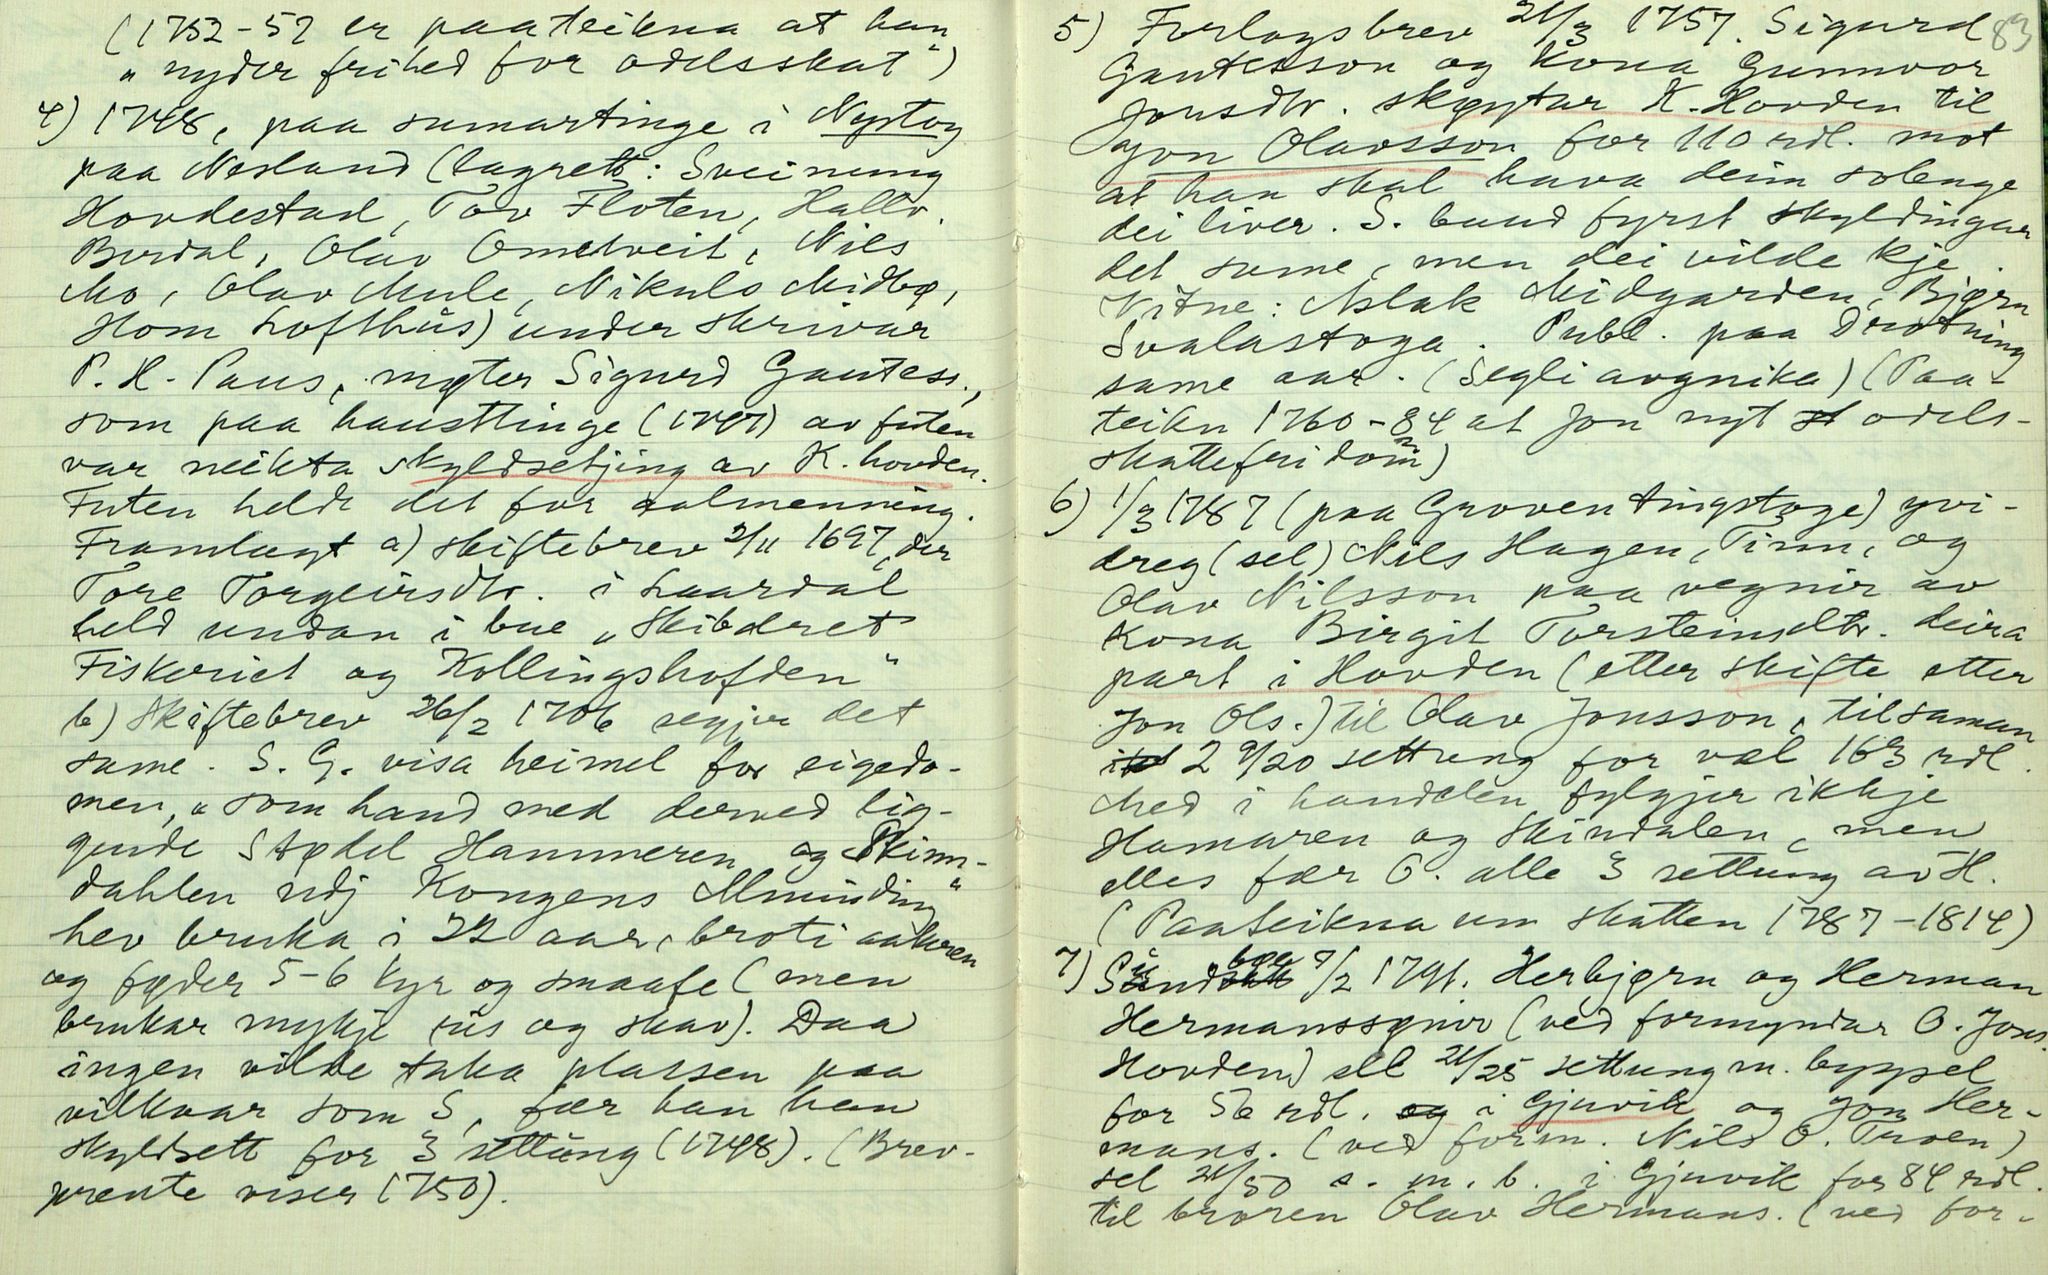 (1752-57 er paateikna at han
"nyder frihed for odelsskat")
4) 1748, paa sumartinge i Nystog
paa Nesland (lagrett: Sveinung
Hovdestad, Tov Floten, Hallv.
Burdal, Olav Omdtveit, Nils
Mo, Olav Mule, Nikuls Midbø,
Hom Lofthus) under skrivar
P. H. Paus, møter Sigurd Gautess.,
som paa hausttinge (1747) av futen
var neikta skyldsetjing av K. hovden.
Futen heldt det for aalmenning.
Framlagt a) skiftebrev 2/11 1697, der
Tore Torgeirsdtr. i Laardal
held undan i bue "Skibdret
Fiskeriet og Kollingshofden"
b) Skiftebrev 26/2 1706 segjer det
same. S. G. visa heimel for eigedo-
men, "som hand med derved lig-
gende Stødel Hammeren og Skinn-
dahlen udj Kongens Alminding"
hev bruka i 22 aar, broti aakeren
og føder 5-6 kyr og smaafe (men
brukar mykje ris og skav). Daa
ingen vilde taka plassen paa
vilkaar som S, fær han han
skyldsett for 3 settung (1748). (Brev-
prente viser 1750).
83
5) Forlagsbrev 21/3 1757. Sigurd
Gautesson og kona Gunnvor
Jonsdtr. skøytar K. Hovden til
Jon Olavsson for 110 rdl. mot
at han skal hava deim solenge
dei liver. S. baud fyrst skyldingar
det same, men dei vilde kje.
Vitne: Aslak Midgarden, Bjørn
Svalastoga. Publ. paa Drotning
same aar. (Segli avgnika) (Paa-
teikn 1760-84 at Jon nyt odels-
skattefridom)
6) 1/3 1787 (paa Groven tingstoge) yvi-
dreg (sel) Nils Hagen, Tinn, og
Olav Nilsson paa vegnir av
kona Birgit Torsteinsdtr. deira
part i Hovden (etter skifte etter
Jon Ols.) til Olav Jonsson, tilsaman
2 9/20 settung for val 163 rdl.
Med i handelen fylgjer ikkje
Hamaren og Skindalen, men
elles fær O. alle 3 settung av H.
(Paateikna um skatten 1787-1814)
7) Sundbøe 7/2 1791. Herbjørn og Herman
Hermanssøner (ved formyndar O. Jons.
Hovden) sel 21/25 settung m. bygsel
for 56 rdl. i Gjuvik og Jon Her-
mans. (ved form. Nils O. Troen)
sel 21/50 s. m. b. i Gjuvik for 84 rdl.
til broren Olav Hermans. (ved for-